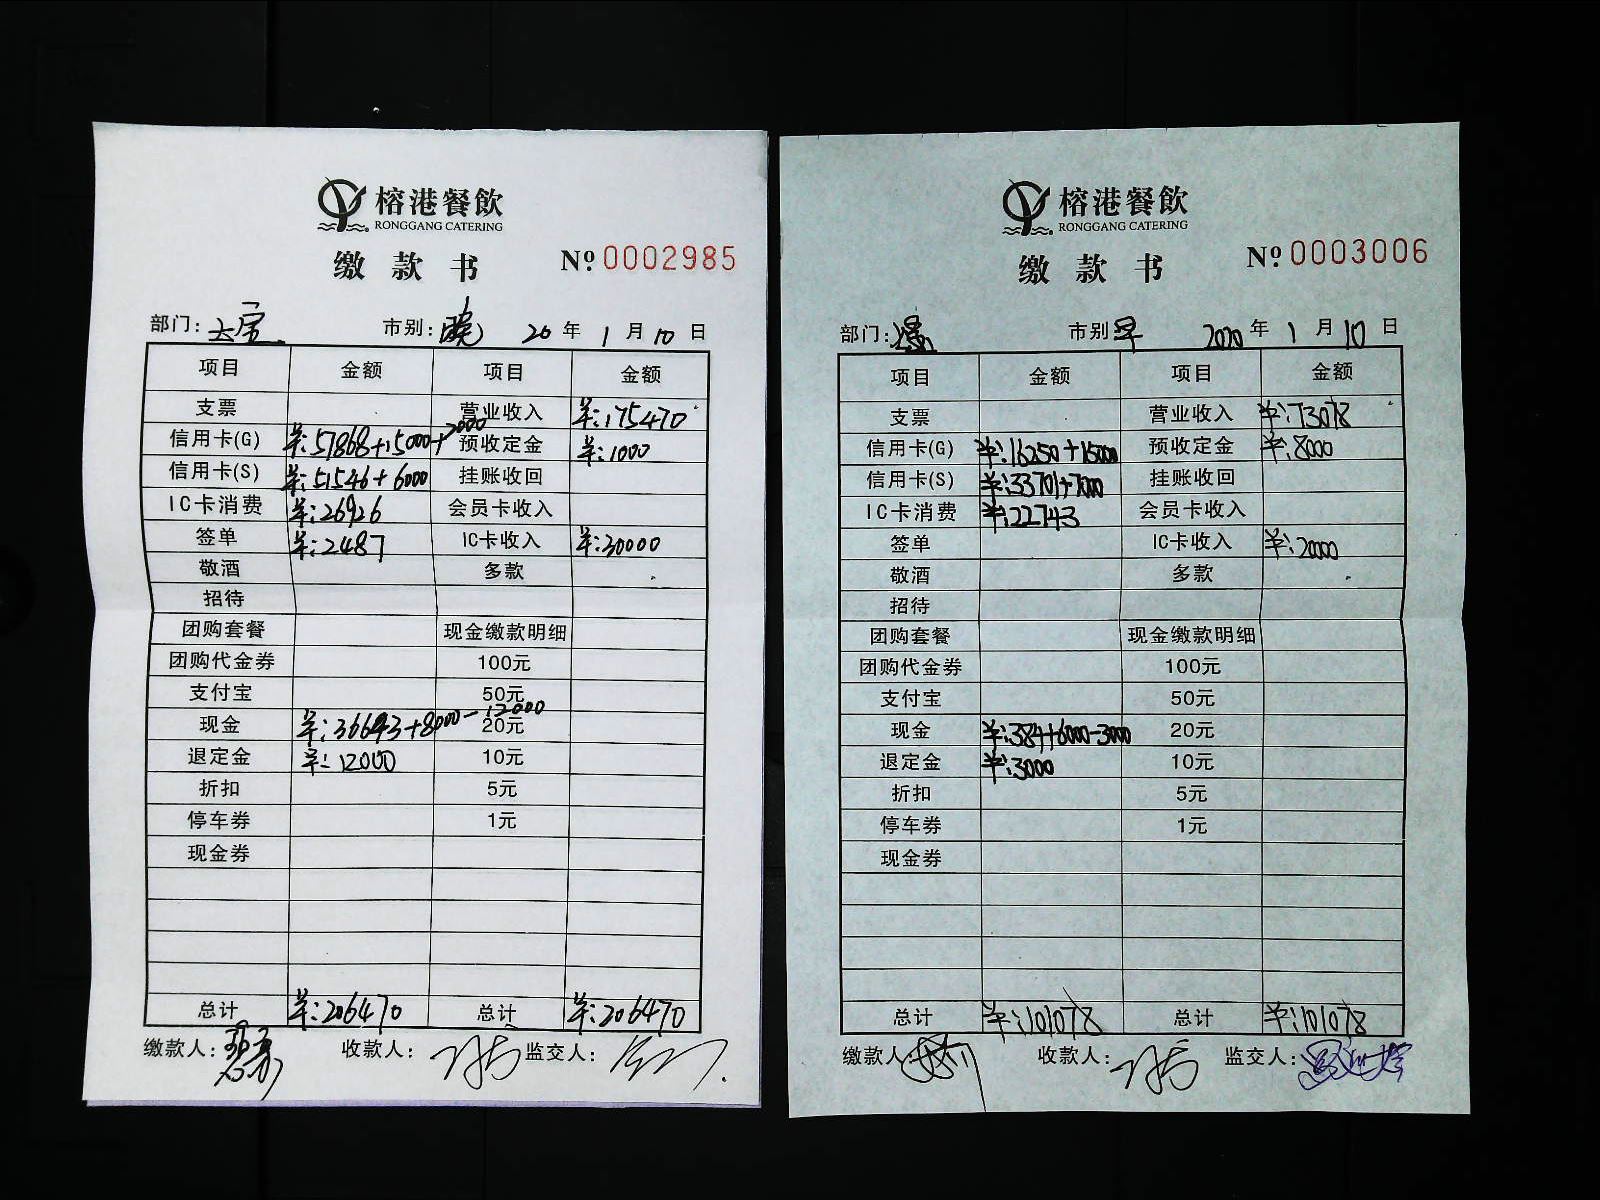 榕港餐飲
RONGGANG CATERING
缴款书 Nº 0002985
部门: 市别:晚 20年1月10日
项目 金额 项目 金额
支票 营业收入 ¥:175470
信用卡(G) ¥:57868+15000+2000 预收定金 ¥:1000
信用卡(S) ¥:51546+6000 挂账收回
IC卡消费 ¥:26926 会员卡收入
签单 ¥:2487 IC卡收入 ¥:30000
敬酒 多款
招待
团购套餐 现金缴款明细
团购代金券 100元
支付宝 50元
现金 ¥:36643+8000-12000 20元
退定金 ¥:12000 10元
折扣 5元
停车券 1元
现金券
总计 ¥:206470 总计 ¥:206470
缴款人: 收款人: 监交人:
榕港餐飲
RONGGANG CATERING
缴款书 Nº 0003006
部门: 市别:早 2020年1月10日
项目 金额 项目 金额
支票 营业收入 ¥:73078
信用卡(G) ¥:16250+15000 预收定金 ¥:8000
信用卡(S) ¥:33701+7000 挂账收回
IC卡消费 ¥:22743 会员卡收入
签单 IC卡收入 ¥:20000
敬酒 多款
招待
团购套餐 现金缴款明细
团购代金券 100元
支付宝 50元
现金 ¥:384+6000-3000 20元
退定金 ¥:3000 10元
折扣 5元
停车券 1元
现金券
总计 ¥:101078 总计 ¥:101078
缴款人: 收款人: 监交人: